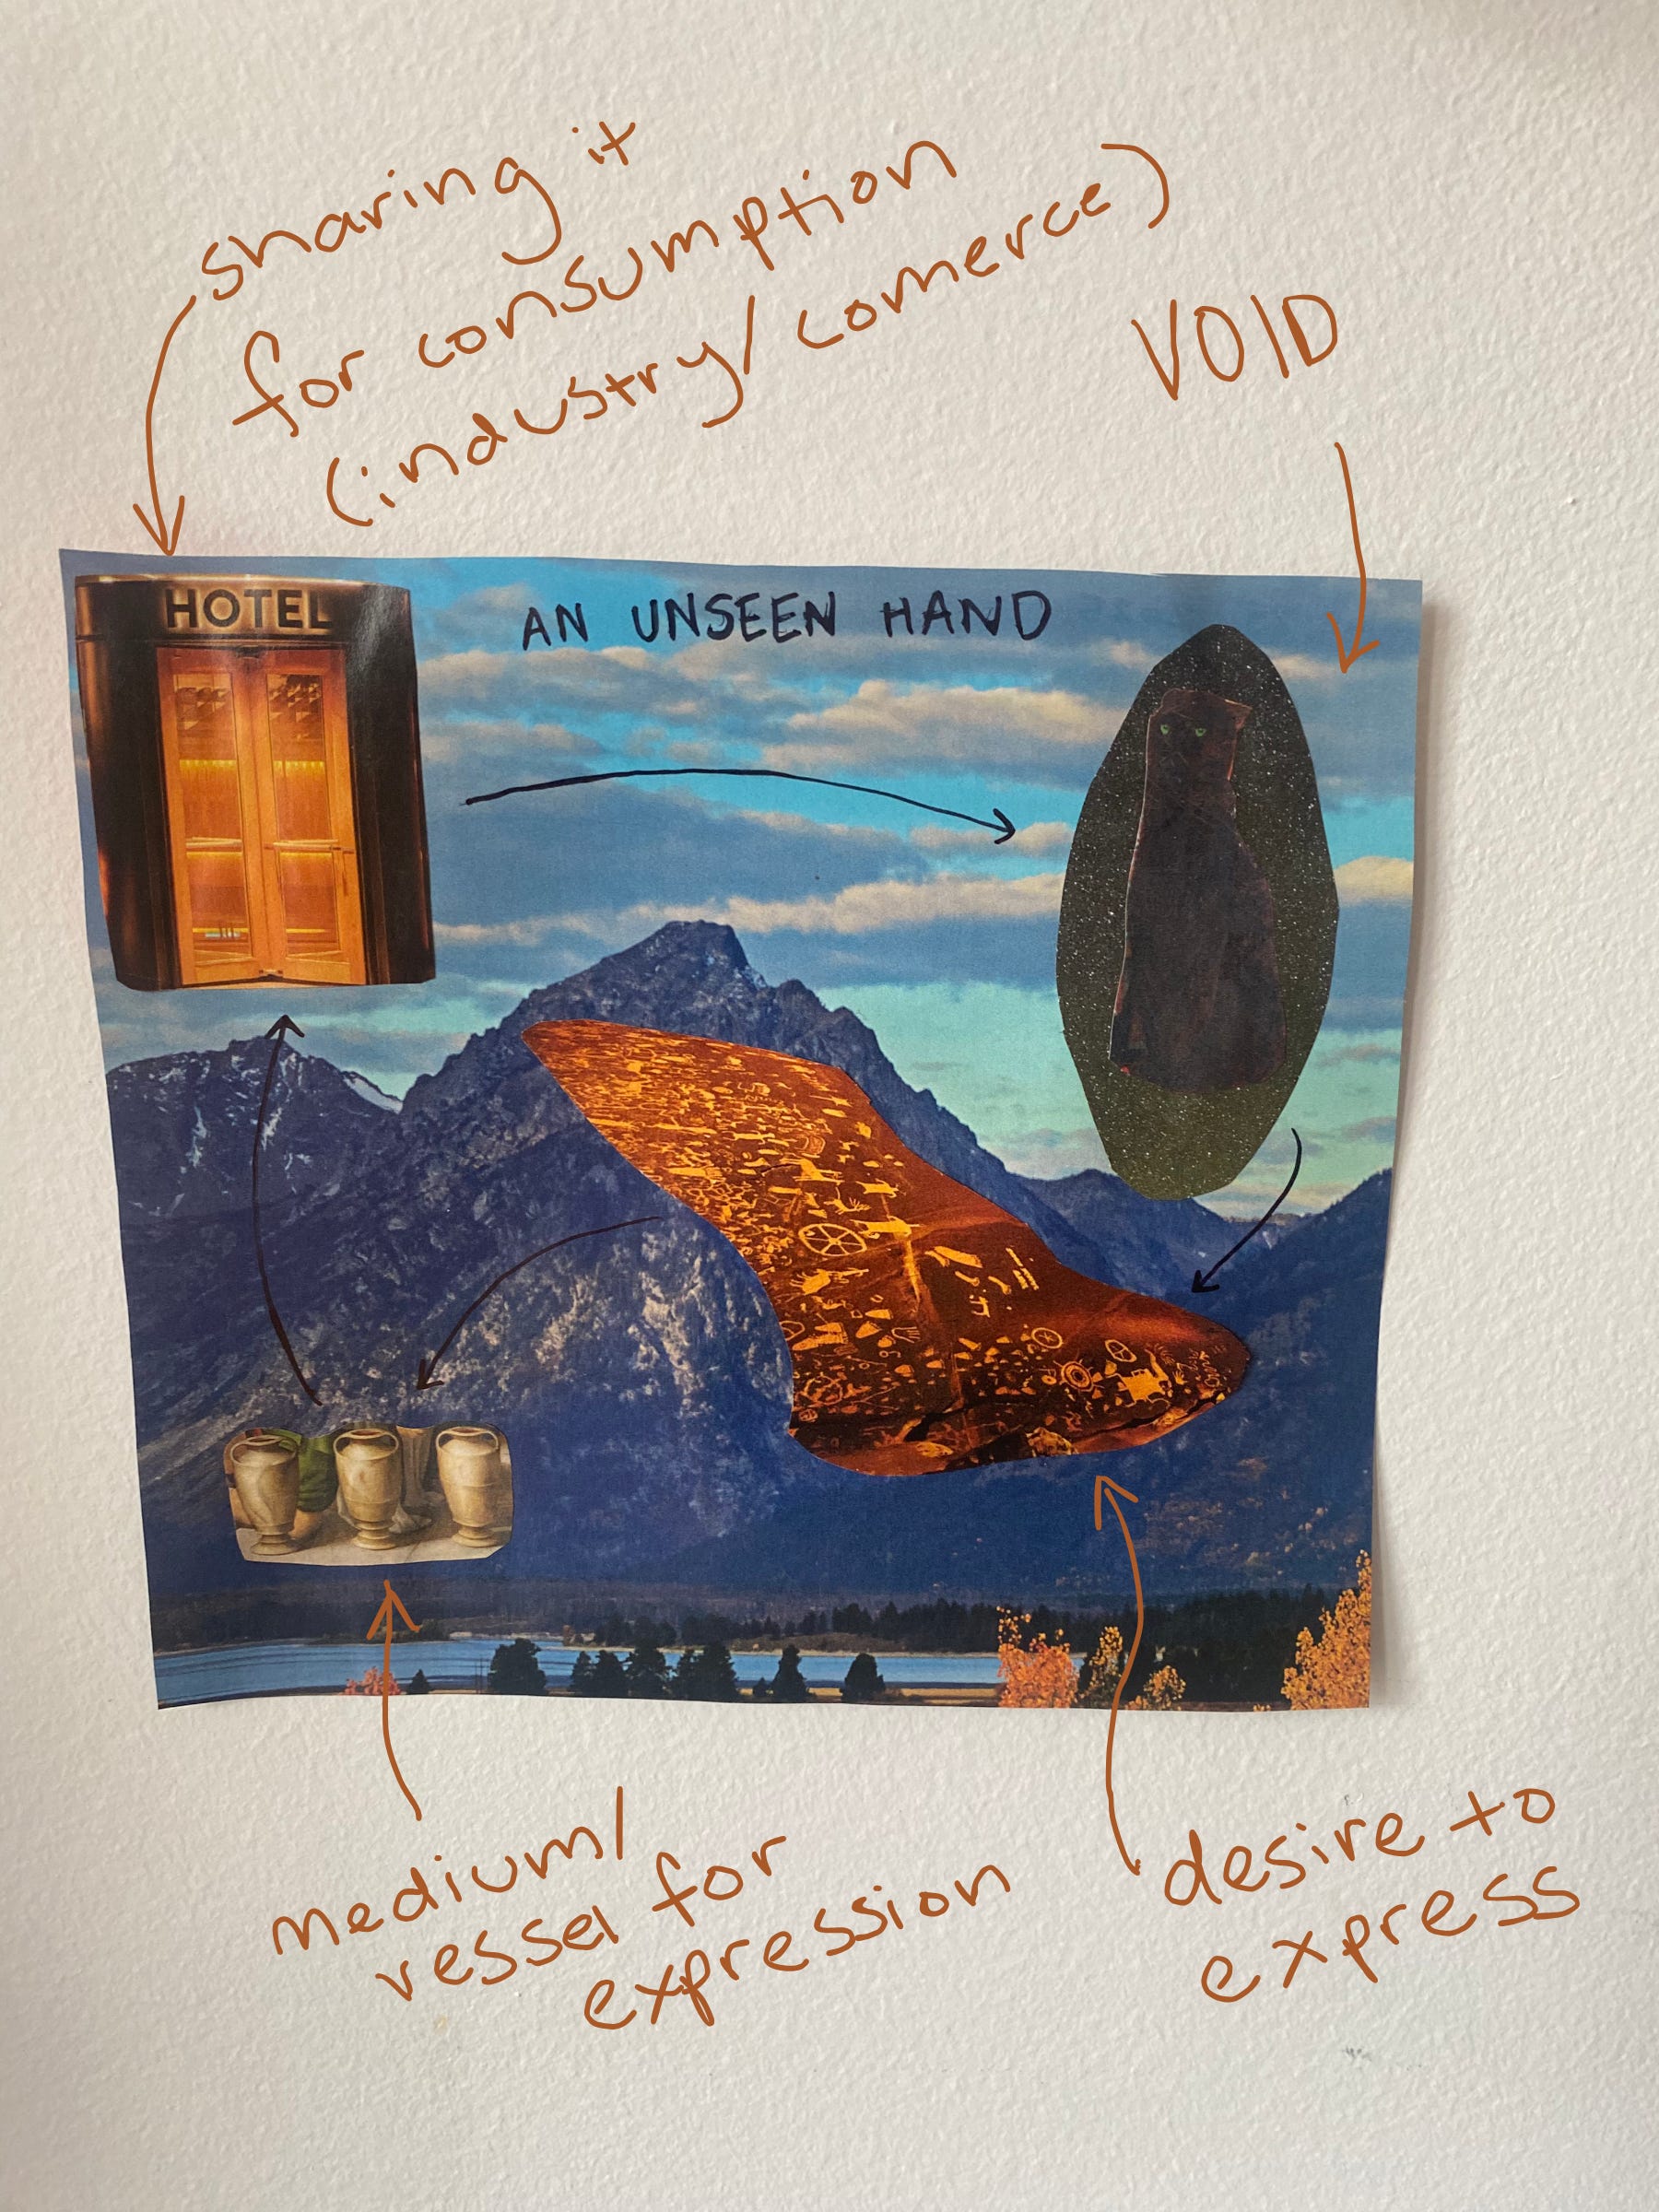 sharing it
for consumption
(industry/comerce)
VOID
HOTEL
AN UNSEEN HAND
medium/
vessel for
expression
desire to
express